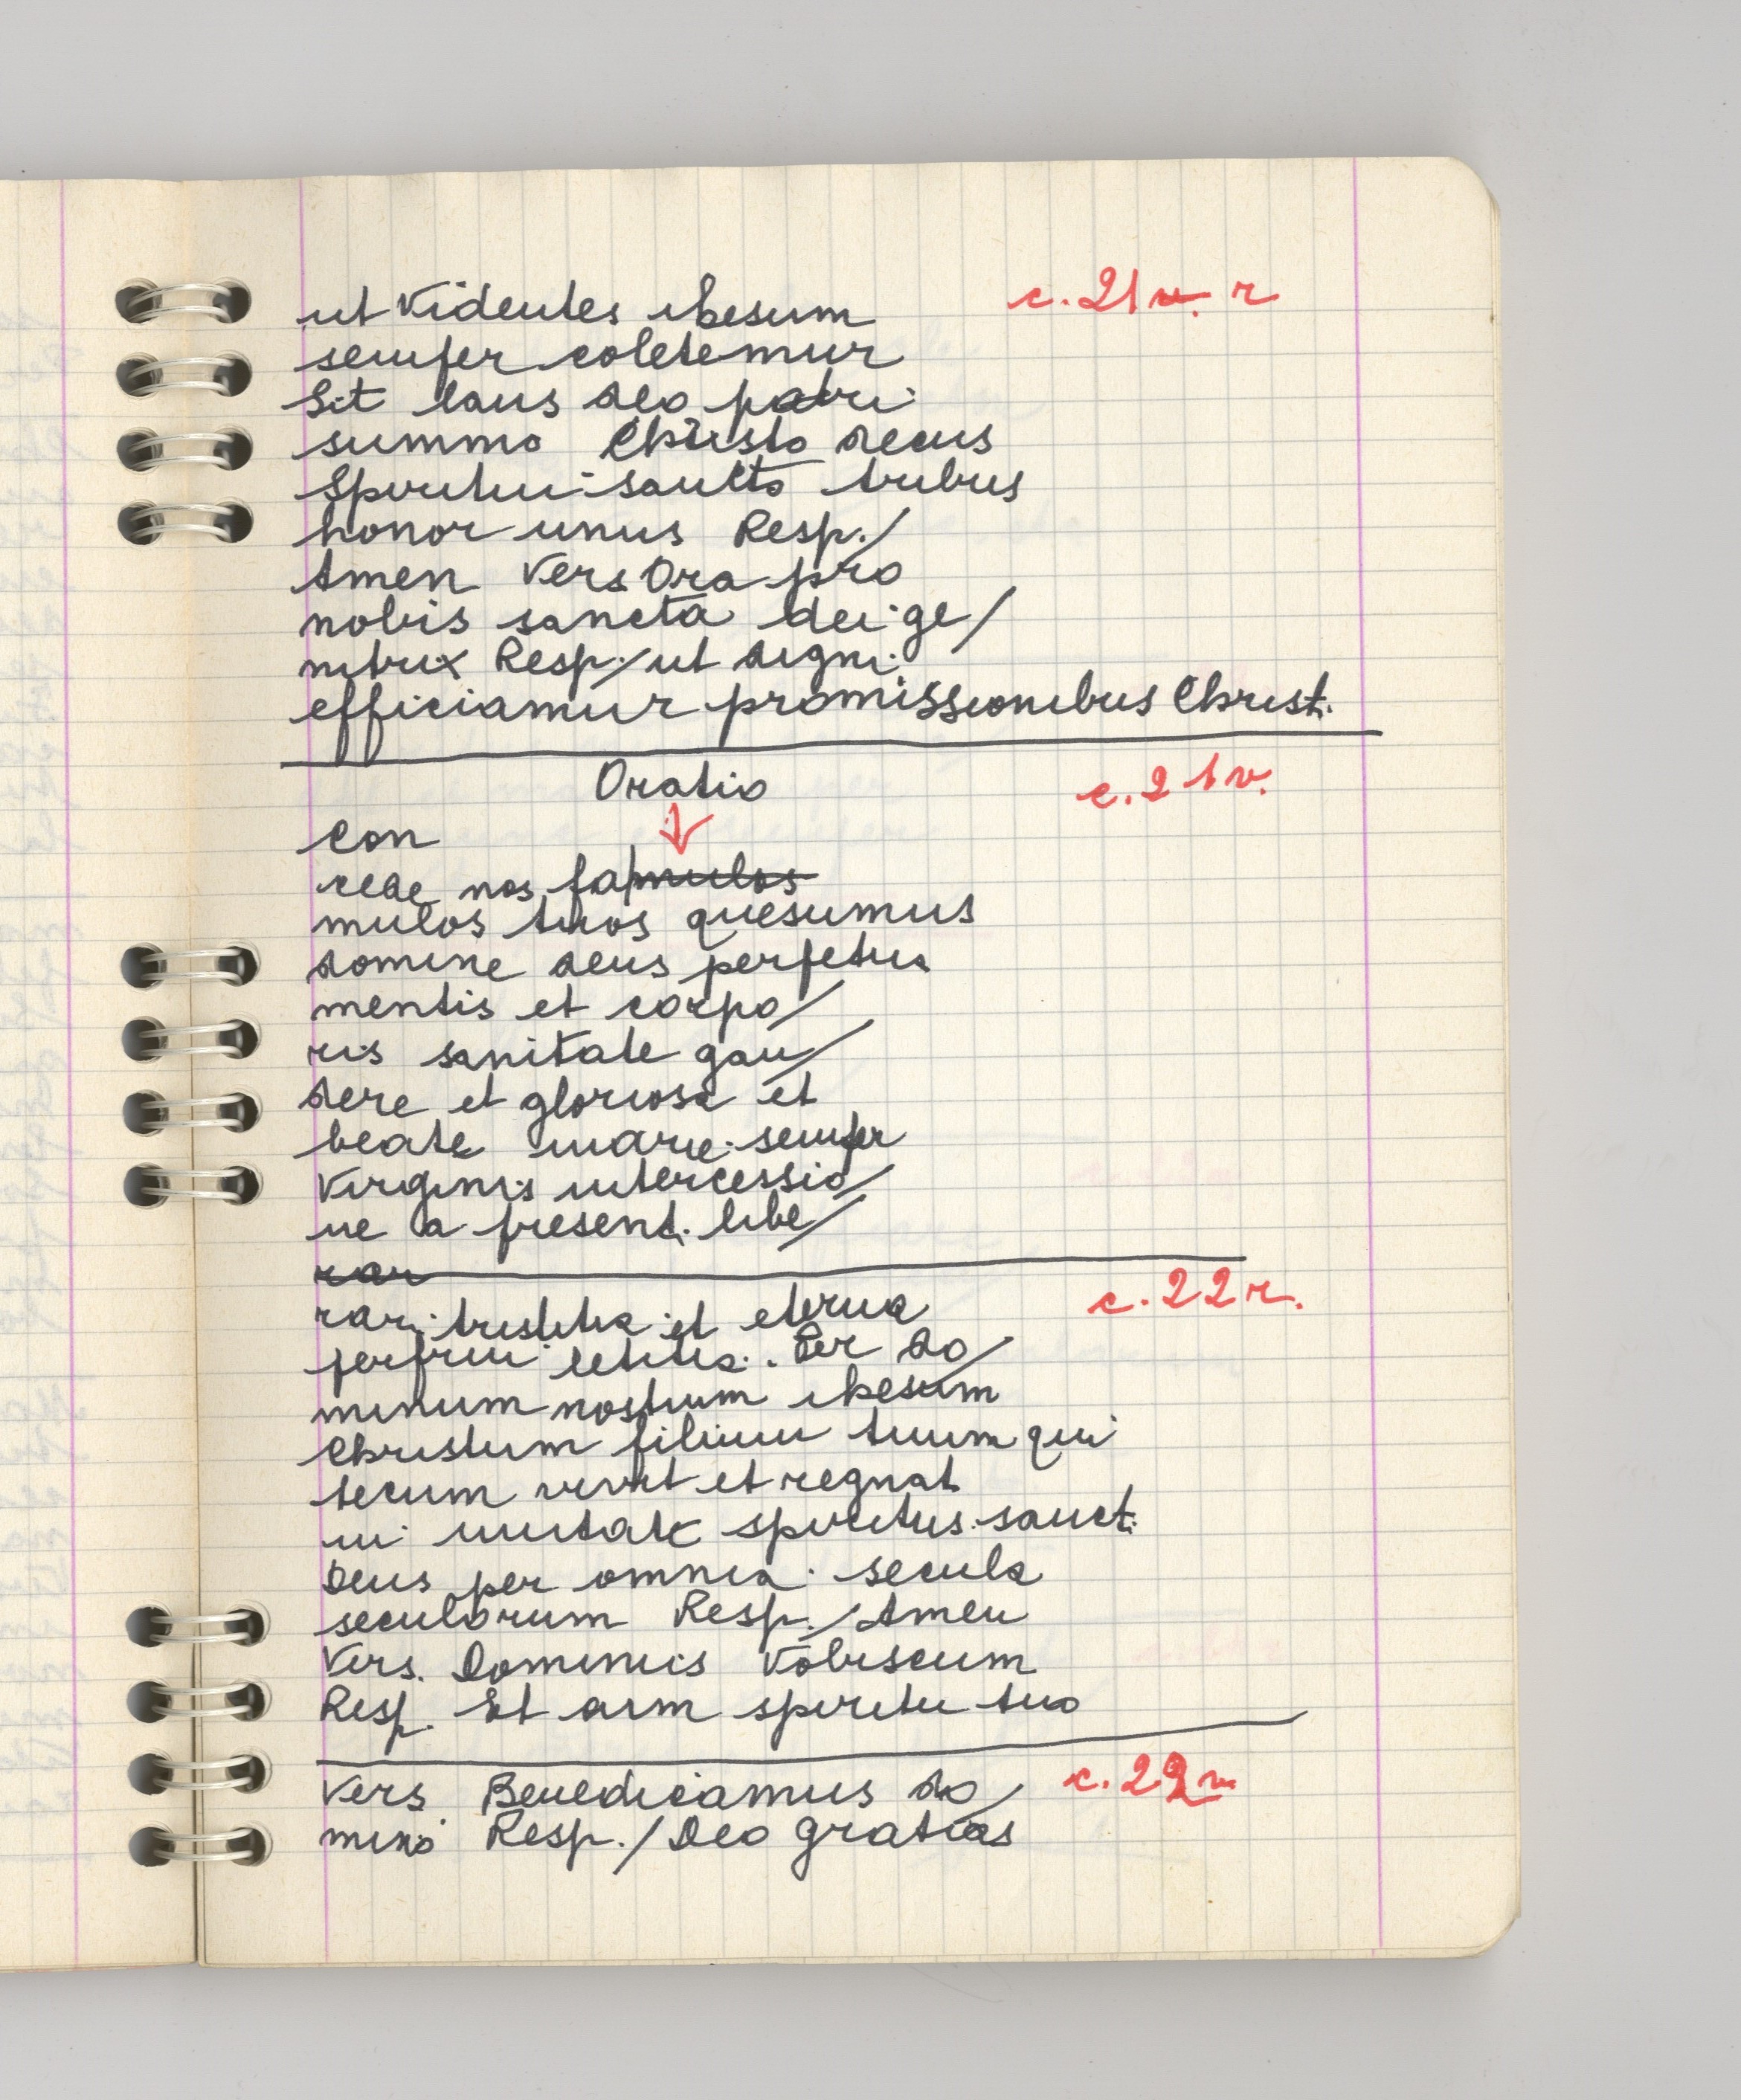 ut Videntes ihesum c. 21 v. r
semper coletemur
Sit laus deo patri
summo Christo decus
Spiritui sancto tribus
honor unus Resp./
Amen Vers Ora pro
nobis sancta dei ge/
nitrix Resp./ ut digni
efficiamur promissionibus Christi
Oratio c. 21 v.
Con
cede nos famulos
mulos tuos quesumus
domine deus perpetua
mentis et corpo/
ris sanitate gau/
dere et gloriosa et
beate marie semper
Virginis intercessio/
ne a presenti libe/
rar
rari tristitia et eterna c. 22 r.
perfrui letitia. Per do/
minum nostrum ihesum
Christum filium tuum qui
tecum vivit et regnat
in unitate spiritus sancti
Deus per omnia secula
seculorum Resp./ Amen
Vers. Dominus Vobiscum
Resp. Et cum spiritu tuo
Vers. Benedicamus do/ c. 22 v.
mino Resp./ Deo gratias